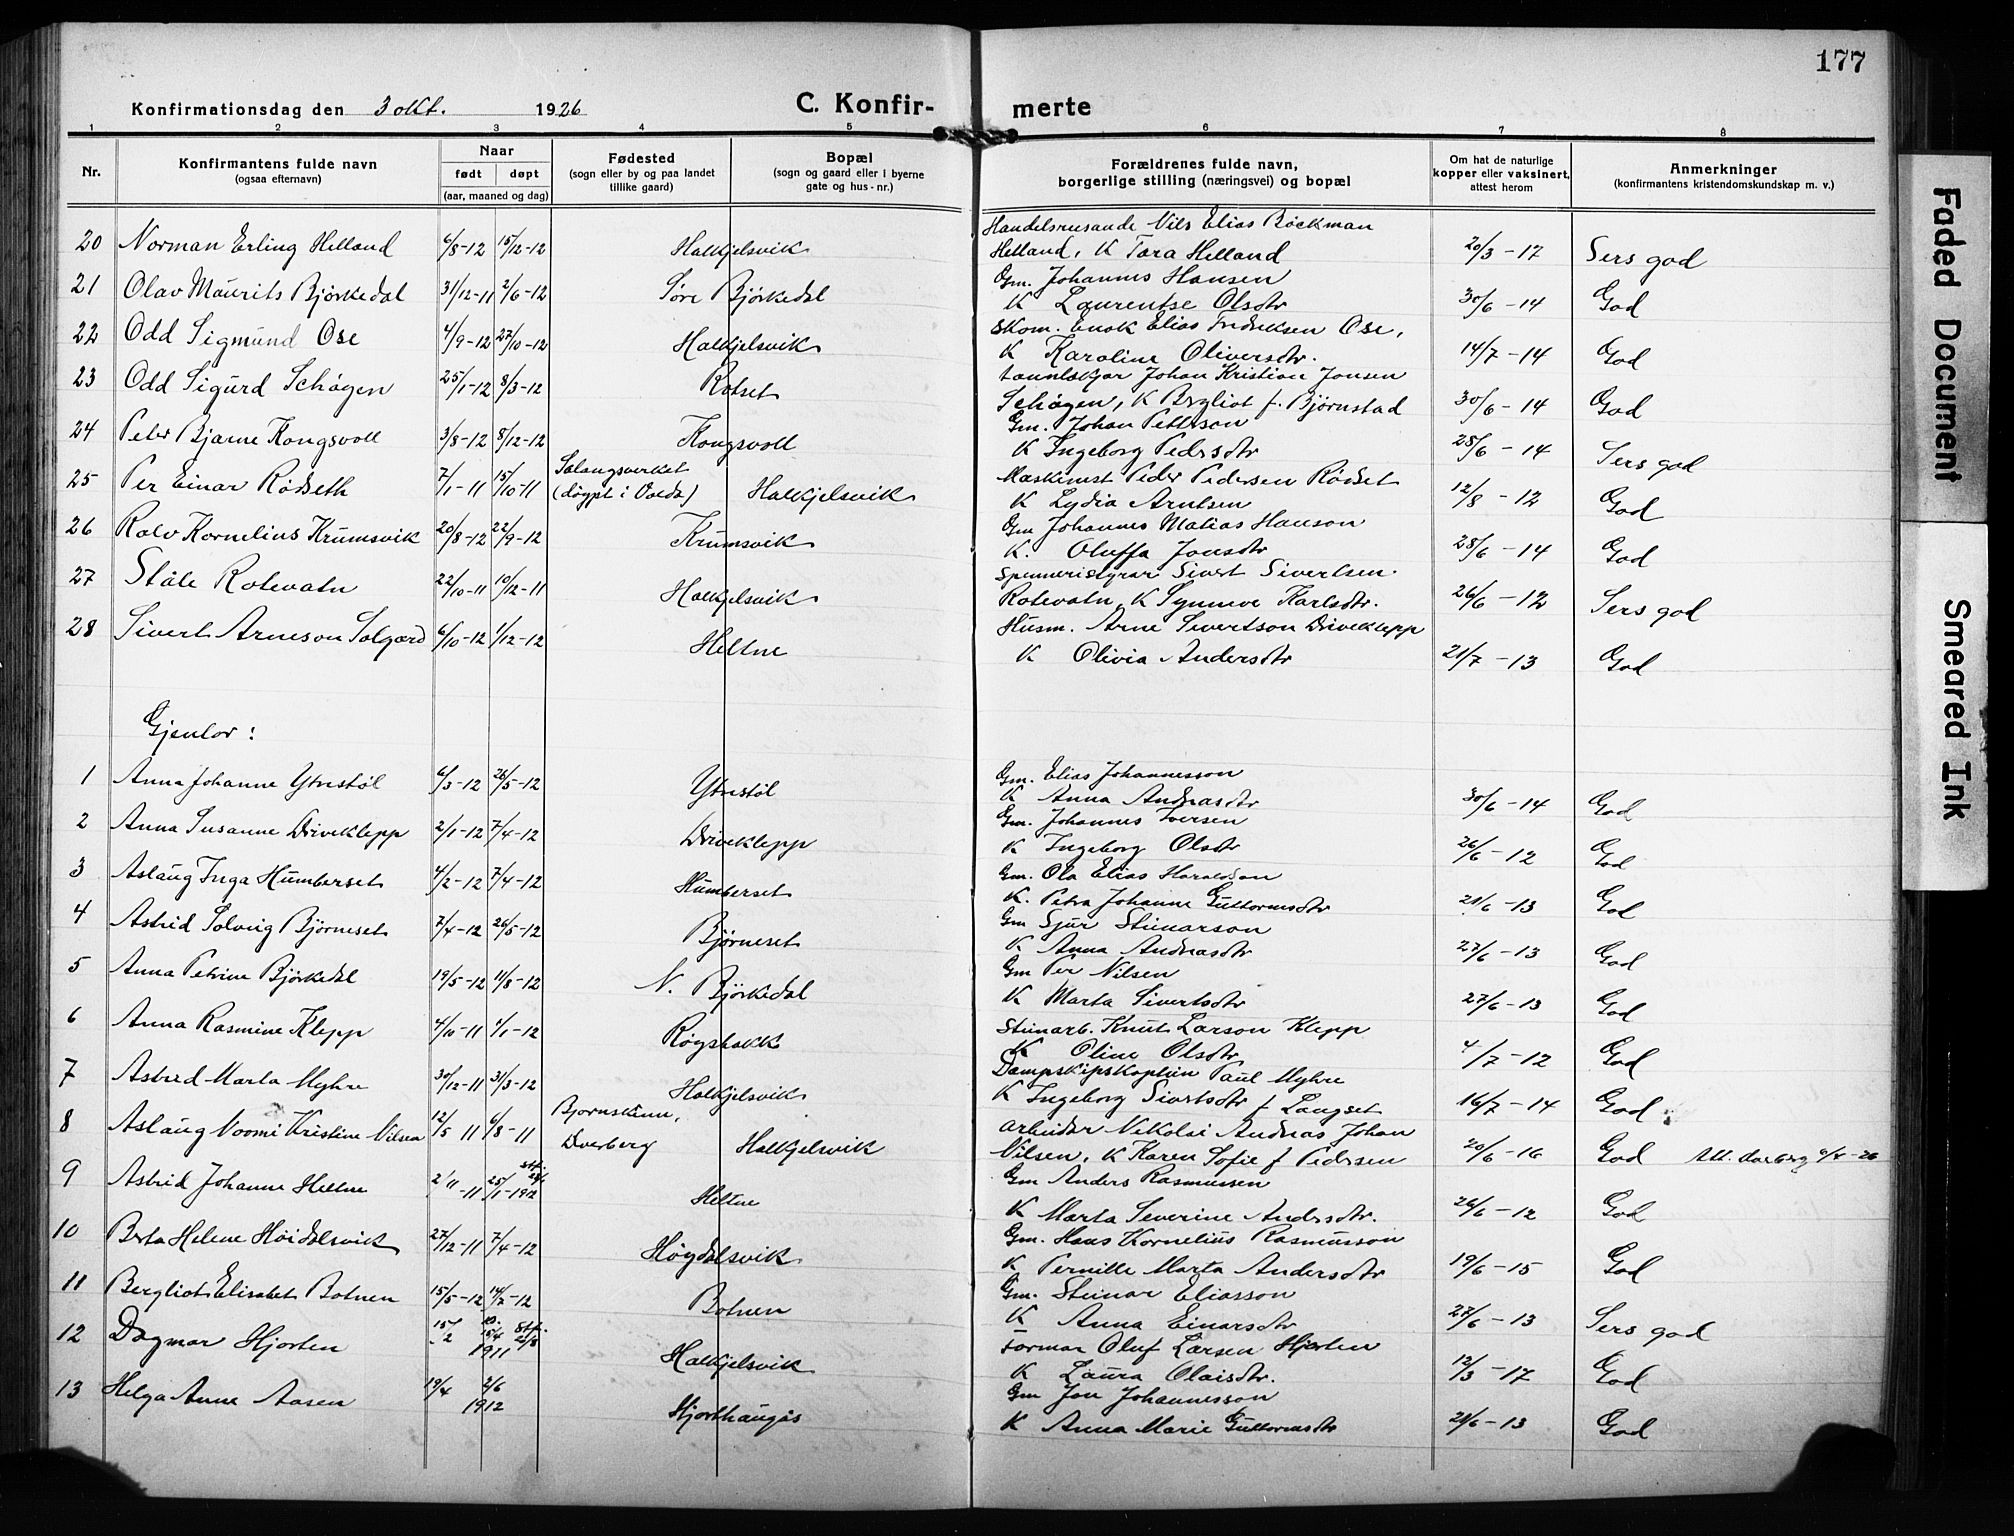 177
Konfirmationsdag den 3 okt. 1926
C. Konfir-merte
1 2 3 4 5 6 7 8
Nr.
Konfirmantens fulde navn
(ogsaa efternavn)
Naar
født døpt
(aar, maaned og dag)
Fødested
(sogn eller by og paa landet
tillike gaard)
Bopæl
(sogn og gaard eller i byerne
gate og hus-nr.)
Forældrenes fulde navn,
borgerlige stilling (næringsvei) og bopæl
Om hat de naturlige
kopper eller vaksinert,
attest herom
Anmerkninger
(konfirmantens kristendomskundskap m. v.)
Handelsreisande Nils Elias Bøckman
20 Norman Erling Helland 6/8-12 15/12-12 Halkjelsvik Helland, K Tora Helland 20/3-17 Sers god
Gm. Johannes Hansen
21 Olav Maurits Bjørkedal 31/12-11 2/6-12 Søre Bjørkedal K Laurentse Olsdtr 30/6-14 God
Skom. Enok Elias Fredriksen Ose,
22 Odd Sigmund Ose 4/9-12 27/10-12 Halkjelsvik K Karoline Oliversdtr. 14/7-14 God
Johan Kristian Jonsen
23 Odd Sigurd Schågen 25/1-12 8/3-12 Rotset Schågen, K Bergliot f. Bjørnstad 30/6-14 God
Gm. Johan Petterson
24 Peter Bjarne Kongsvoll 3/8-12 8/12-12 Kongsvoll K Ingeborg Pedersdtr 28/6-14 Sers god
Salangsverket
Maskinist Peder Pedersen Rødset
25 Per Einar Rødseth 7/1-11 15/10-11 (døypt i Volda) Halkjelsvik K Lydia Arntsen 12/8-12 God
Gm Johannes Matias Hanson
26 Rolv Kornelius Krumsvik 20/8-12 22/9-12 Krumsvik K. Oluffa Jonsdtr 28/6-14 God
Spenneristyrar Sivert Sivertsen
27 Ståle Rotevatn 22/10-11 10/12-11 Halkjelsvik Rotevatn, K Synneve Karlsdtr. 26/6-12 Sers god
Husm. Arne Sivertson Driveklepp
28 Sivert Arneson Solgard 6/10-12 1/12-12 Heltne K Olivia Andersdtr 21/7-13 God
Gjentor:
Gm. Elias Johannesson
1 Anna Johanne Ytrestøl 6/3-12 26/5-12 Ytrestøl K Anna Andreasdtr 30/6-14 God
Gm. Johannes Iversen
2 Anna Susanne Driveklepp 2/1-12 7/4-12 Driveklepp K Ingeborg Olsdtr 26/6-12 God
Gm. Ola Elias Haraldson
3 Aslaug Inga Humberset 4/2-12 7/4-12 Humberset K. Petra Johanne Guttormsdtr 21/6-13 God
Gm Sjur Steinarson
4 Astrid Solveig Bjørneset 7/4-12 26/5-12 Bjørneset K Anna Andreasdtr 27/6-13 God
Gm Per Nilsen
5 Anna Petrine Bjørkedal 19/5-12 11/8-12 N. Bjørkedal K Marta Sivertsdtr 27/6-13 God
Steinarb. Knut Larson Klepp
6 Anna Rasmine Klepp 4/10-11 1/1-12 Røyshakk K Oline Olsdtr 4/7-12 God
Dampskipskaptein Paul Myhre
7 Astrid Marta Myhre 30/12-11 31/3-12 Halkjelsvik K Ingeborg Sivertsdtr f Langset 16/7-14 God
Bjornskinn,
Arbeider Nikolai Andreas Johan
8 Aslaug Noomi Kristine Nilsen 12/5 11 6/8-11 Dverberg Halkjelsvik Nilsen, K Karen Sofie f Pedersen 20/6-16 God
Gm Anders Rasmussen
9 Astrid Johanne Heltne 2/11-11 25/1-1912 Heltne K Marta Severine Andersdtr. 26/6-12 God
Gm. Hans Kornelius Rasmusson
10 Berta Helene Høidalsvik 27/12-11 7/4-12 Høydalsvik K Pernille Marta Andersdtr 19/6-15 God
Gm. Steinar Eliasson
11 Bergliot Elisabet Botnen 15/5-12 14/7-12 Botnen K Anna Einarsdtr 27/6-13 Sers god
Formar Oluf Larsen Hjorten
12 Dagmar Hjorten 15/2 1911 Halkjelsvik K Laura Olaisdtr. 12/3-17 God
Gm Jon Johannesson
13 Helga Anne Aasen 19/4 2/6 1912 Hjorthaugås K Anna Marie Guttormsdtr 21/6-13 God
Faded Document
Smeared Ink